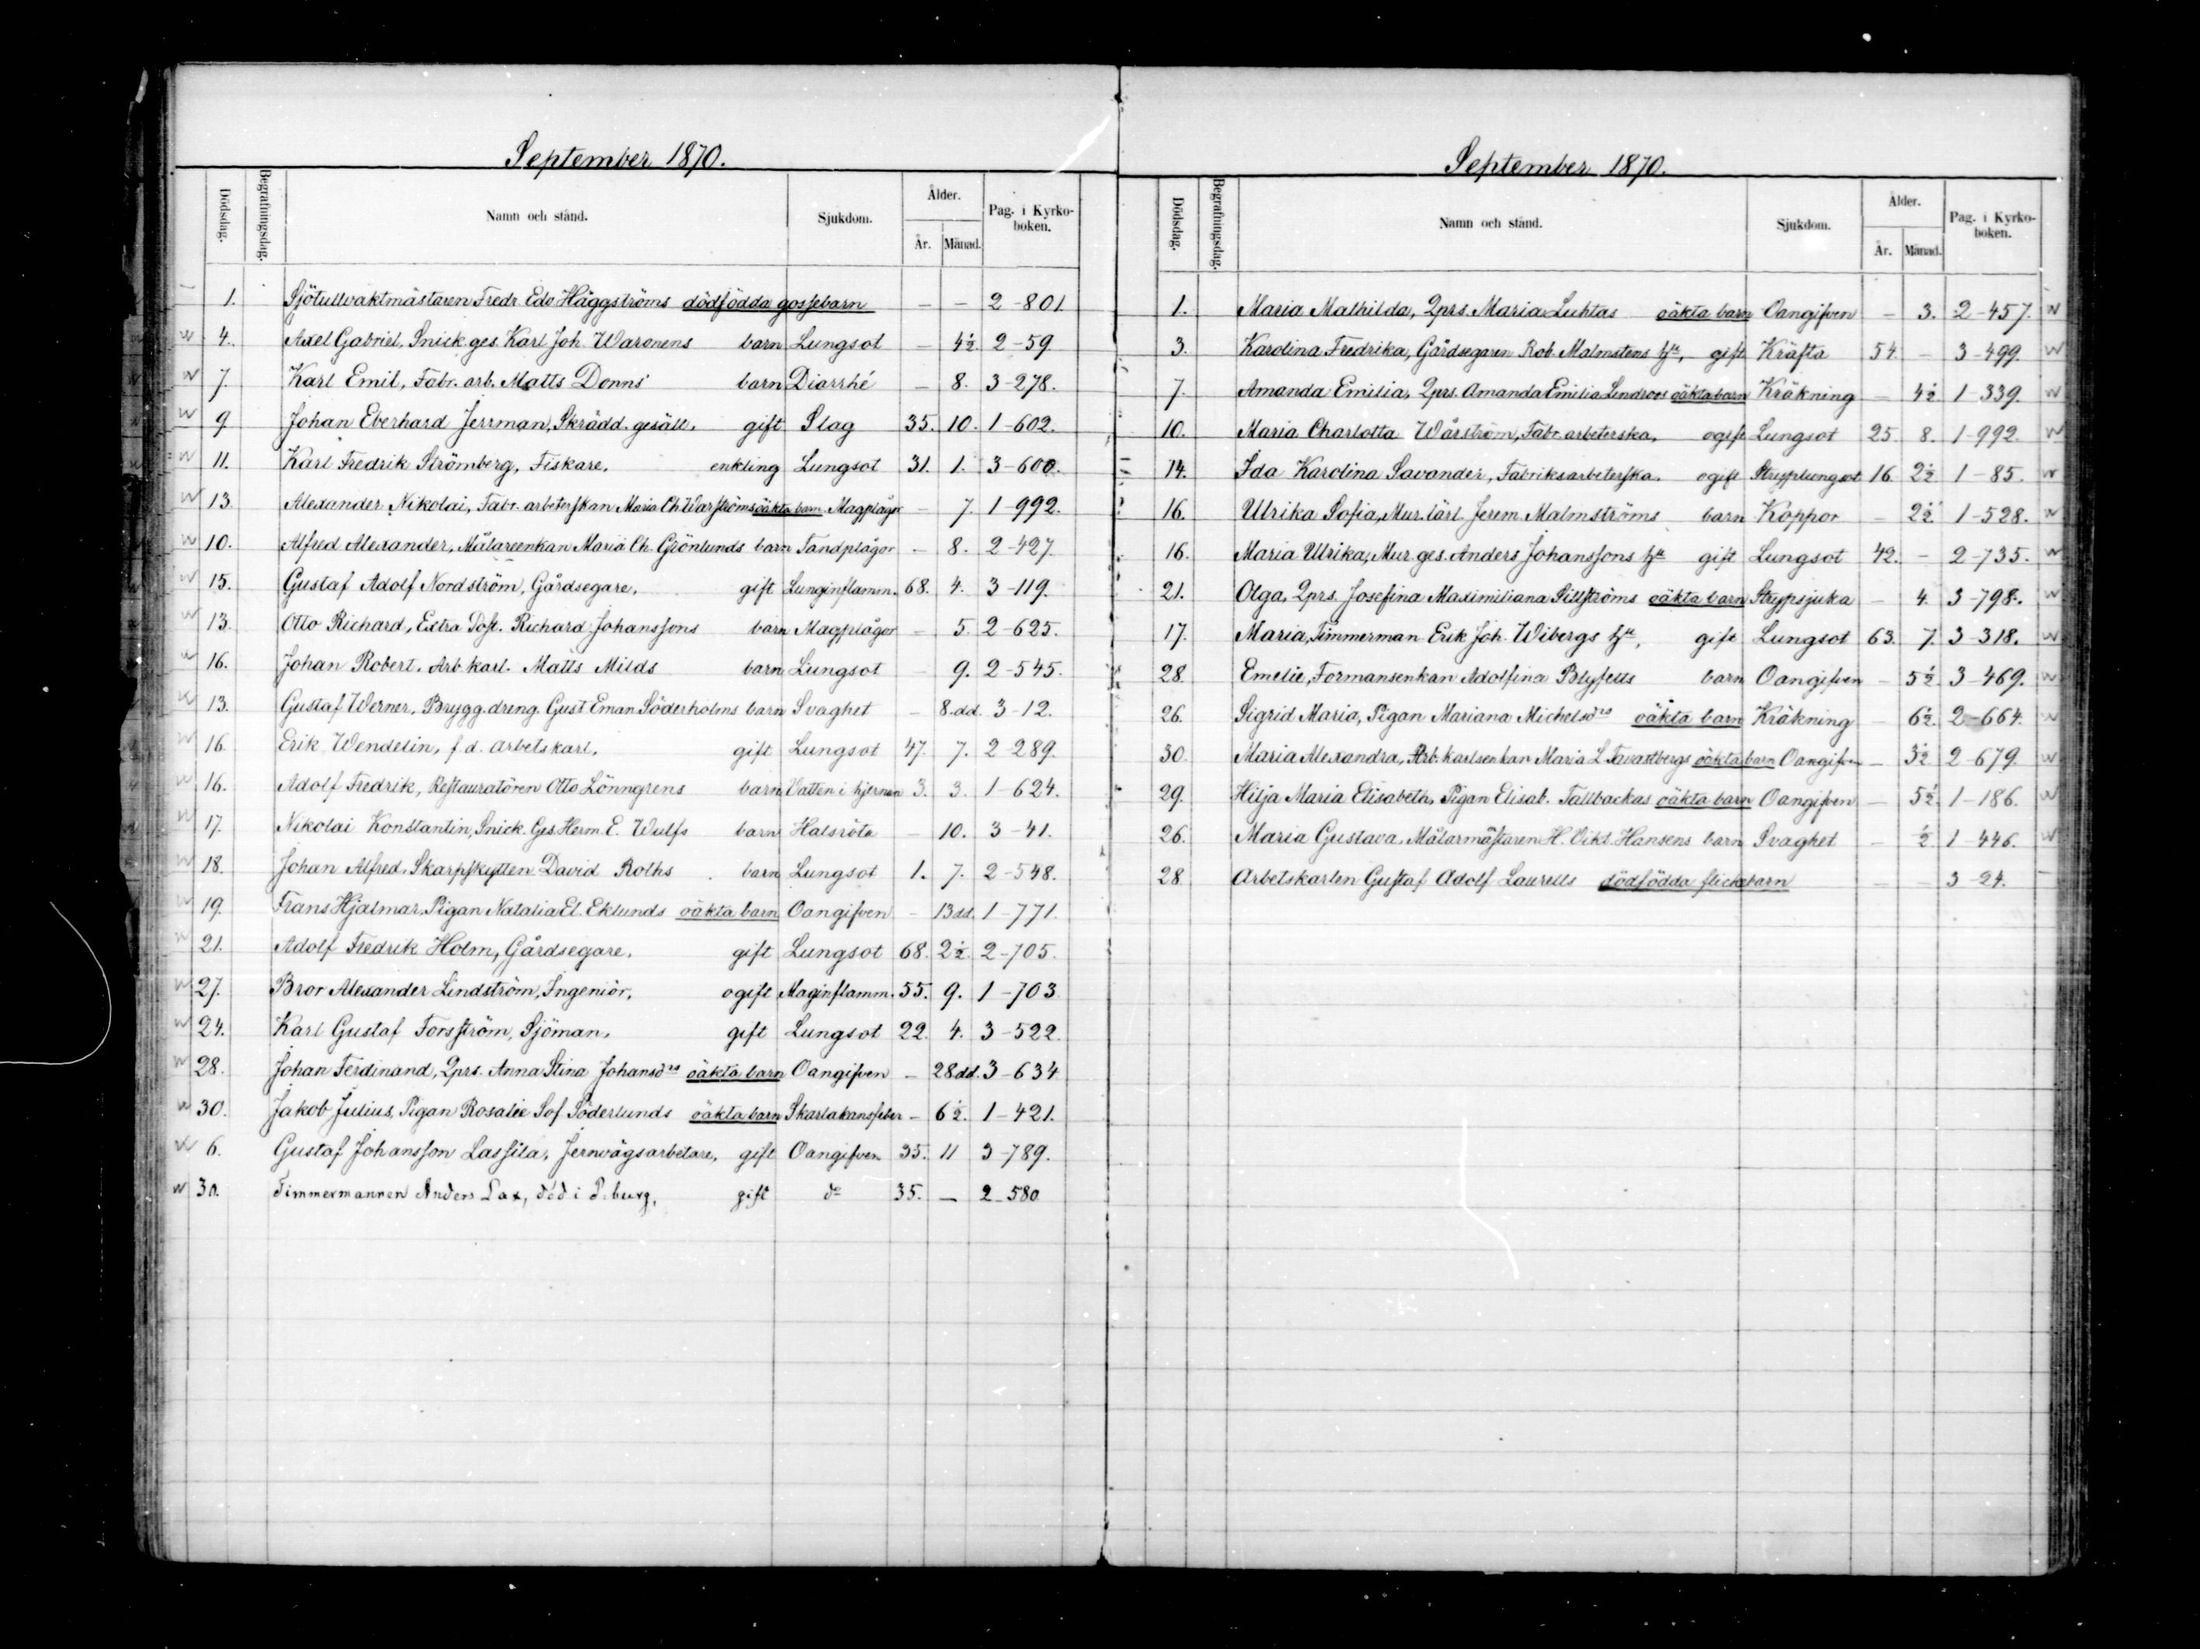 September 1870.
Dödsdag. Begrafningsdag. Namn och stånd. Sjukdom. Ålder. År. Månad. Pag. i Kyrkoboken.
1. Sjötullvaktmästaren Fredr. Edv. Häggströms dödfödda gossebarn — — 2-801
4. Axel Gabriel, Snick. ges. Karl Joh. Waronens barn Lungsot — 4½ 2-59
7. Karl Emil, Fabr. arb. Matts Donns barn Diarrhé — 8. 3-278.
9. Johan Eberhard Jerrman, Skrädd. gesäll. gift Slag 35. 10. 1-602.
11. Karl Fredrik Strömberg, Fiskare. enkling Lungsot 31. 1. 3-600.
13. Alexander Nikolai, Fabr. arbeterskan Maria Ch. Warströms oäkta barn Magplågor — 7. 1-992.
10. Alfred Alexander, Målareenkan Maria Ch. Grönlunds barn Tandplågor — 8. 2-427
15. Gustaf Adolf Nordström, Gårdsegare. gift Lunginflamm. 68. 4. 3-119.
13. Otto Richard, Extra Post. Richard Johanssons barn Magplågor — 5. 2-625.
16. Johan Robert. Arb. karl. Matts Milds barn Lungsot 9. 2-545.
13. Gustaf Werner, Brygg. dreng. Gust. Eman Söderholms barn Svaghet — 8.dd. 3-12.
16. Erik Wendelin, f.d. arbetskarl. gift Lungsot 47. 7. 2-289.
16. Adolf Fredrik, Restauratören Otto Lönngrens barn Vatten i hjernan 3. 3. 1-624.
17. Nikolai Konstantin, Snick. Ges. Herm. E. Wulfs barn Halsröta — 10. 3-41.
18. Johan Alfred, Skarpskytten David Roths barn Lungsot 1. 7. 2-548.
19. Frans Hjalmar, Pigan Natalia El. Eklunds oäkta barn Oangifven — 13 dd. 1-771.
21. Adolf Fredrik Holm, Gårdsegare. gift Lungsot 68. 2½. 2-705.
27. Bror Alexander Lindström, Ingeniör, ogift Maginflamm. 55. 9. 1-703
24. Karl Gustaf Forsström, Sjöman. gift Lungsot 22. 4. 3-522.
28. Johan Ferdinand, Qprs. Anna Stina Johansdrs oäkta barn Oangifven — 28 dd. 3-634
30. Jakob Julius, Pigan Rosalie Sof. Söderlunds oäkta barn Skarlakansfeber — 6½. 1-421.
6. Gustaf Johansson Lassila, Jernvägsarbetare, gift Oangifven 35. 11 3-789.
30. Timmermannen Anders Lax, död i P:burg, gift do 35. — 2-580
September 1870.
Dödsdag. Begrafningsdag. Namn och stånd. Sjukdom. Ålder. År. Månad. Pag. i Kyrkoboken.
1. Maria Mathilda, Qprs. Maria Luhtas oäkta barn Oangifven — 3. 2-457.
3. Karolina Fredrika, Gårdsegaren Rob. Malmstens hu, gift Kräfta 54. — 3-499.
7. Amanda Emilia, Qprs. Amanda Emilia Lindroos oäkta barn Kräkning — 4½ 1-339.
10. Maria Charlotta Wårström, Fabr. arbeterska, ogift Lungsot 25. 8. 1-992.
14. Ida Karolina Savander, Fabriksarbeterska. ogift Stryplungsot 16. 2½ 1-85.
16. Ulrika Sofia, Mur. lärl. Jerem. Malmströms barn Koppor — 2½ 1-528.
16. Maria Ulrika, Mur. ges. Anders Johanssons hu gift Lungsot 42. — 2-735.
21. Olga, Qprs. Josefina Maximiliana Sillströms oäkta barn Strypsjuka — 4. 3-798.
17. Maria, Timmerman Erik Joh. Wibergs hu, gift Lungsot 63. 7. 3-318.
28. Emelie, Formansenkan Adolfina Blyfelts barn Oangifven — 5½ 3-469.
26. Sigrid Maria, Pigan Mariana Michelsdrs oäkta barn Kräkning — 6½. 2-664.
30. Maria Alexandra, Arb. karlsenkan Maria L. Tavastbergs oäkta barn Oangifven — 3½ 2-679.
29. Hilja Maria Elisabeth, Pigan Elisab. Tallbackas oäkta barn Oangifven — 5½. 1-186.
26. Maria Gustava, Målarmästaren H. Vikt. Hansens barn Svaghet — ½ 1-446.
28 Arbetskarlen Gustaf Adolf Laurells dödfödda flickebarn — — 3-24.